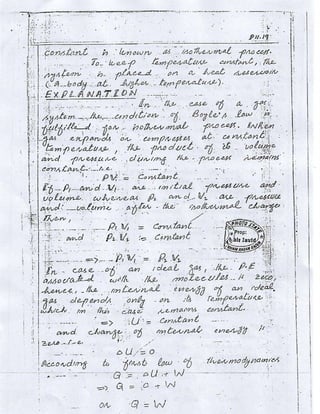 P11.19
constant is known as isothermal process.
To keep temperature constant, the
system is placed on a heat reservoir
(A body at higher temperature).
EXPLANATION
In the case of a gas
system the condition of Boyle's law is
fulfilled for isothermal process. When
gas expands or compresses at constant
temperature, the product of its volume
and pressure during the process remains
constant i.e
PV = Constant
If P₁ and V₁ are initial pressure and
volume whereas P₂ and V₂ are pressure
and volume after the isothermal change
Then,
P₁V₁ = Constant
and P₂V₂ = Constant
PHOTO STATE
Prop:
=> P₁V₁ = P₂V₂
In case of an ideal gas, the P.E
associated with the molecules is zero,
hence, the internal energy of an ideal
gas depends only on its temperature
which in this case remains constant.
=> U = Constant
and change of internal energy is
zero i.e
ΔU = 0
According to first law of thermodynamics
Q = ΔU + W
=> Q = 0 + W
or Q = W